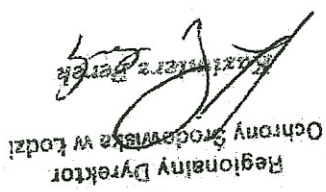 Regionalny Dyrektor
Ochrony Środowiska w Łodzi
Kazimierz Perek